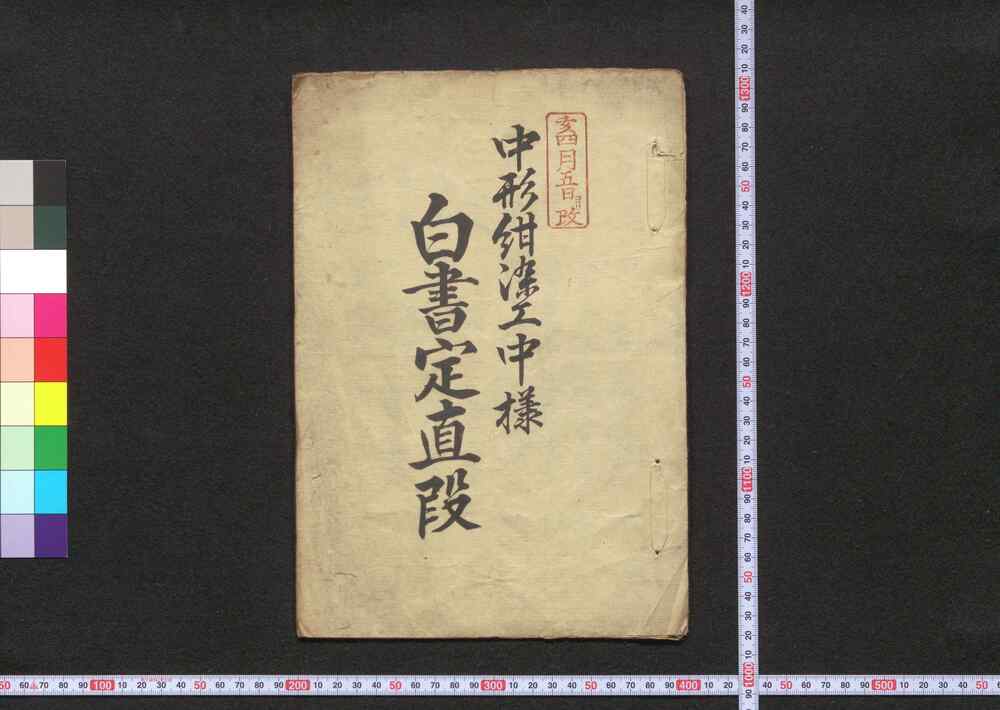 亥四月五日改
中形紺染工中様
白書定直段